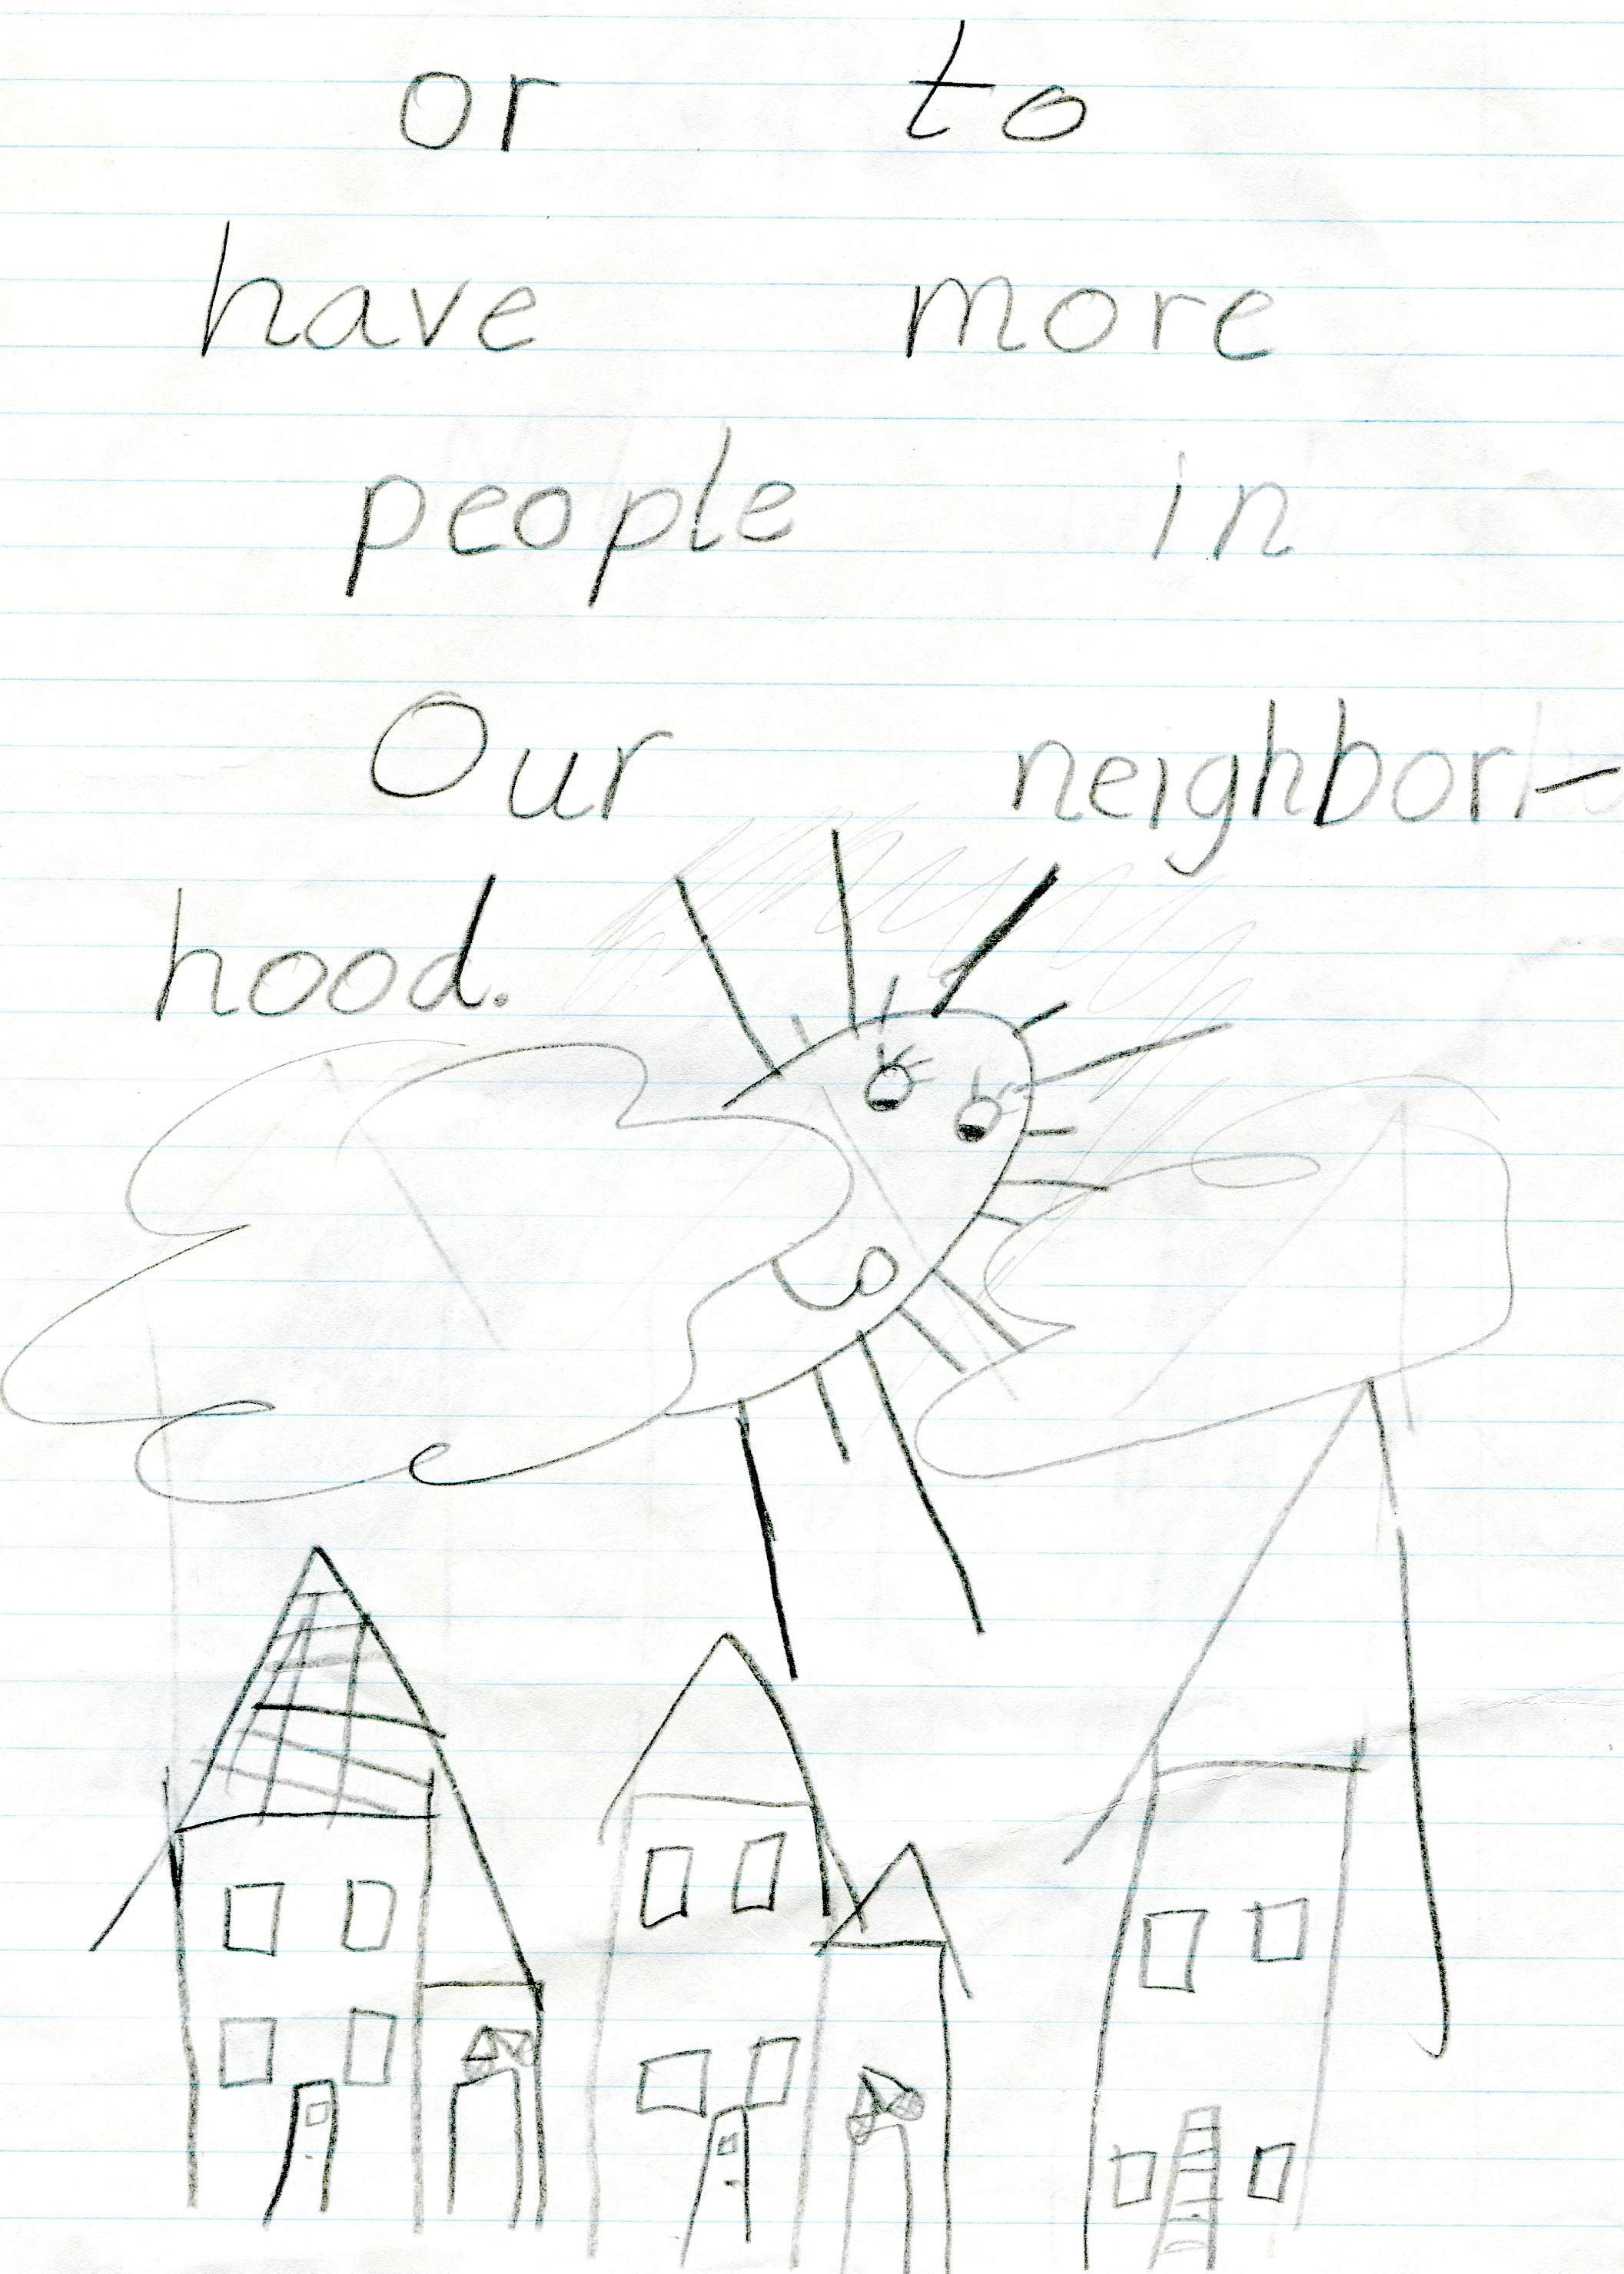 or to
have more
people in
Our neighbor-
hood.